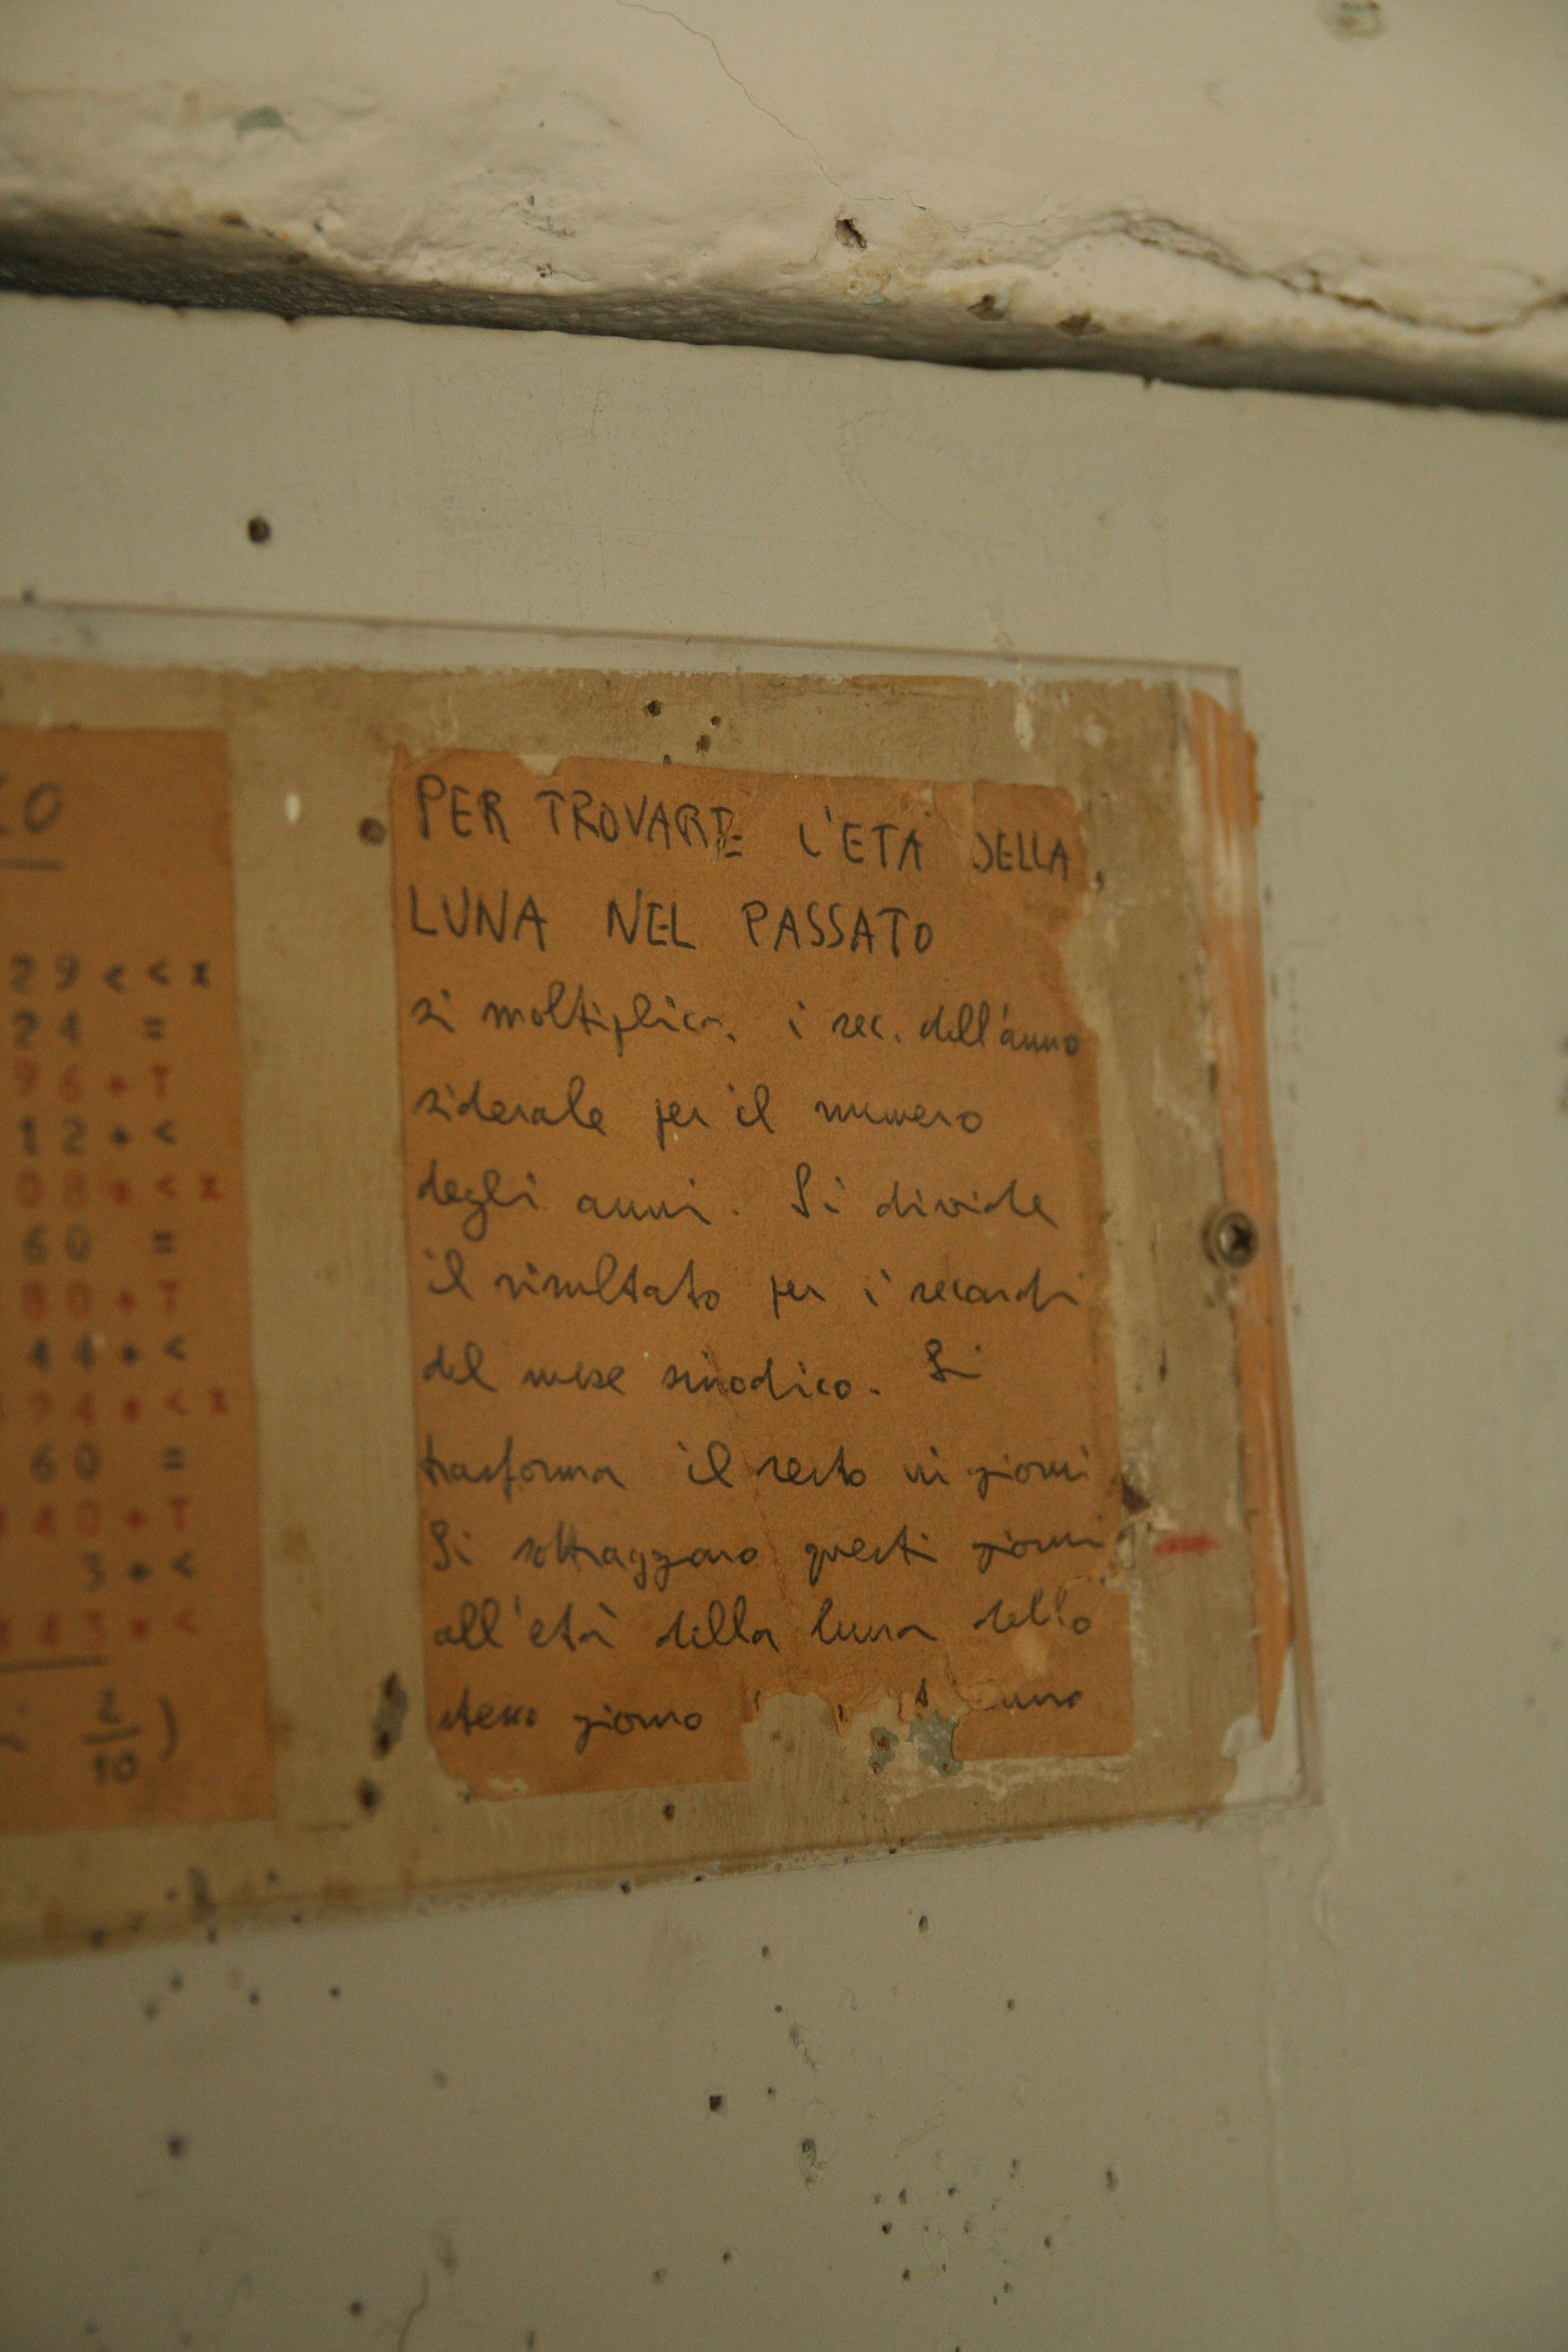 CO
29 < < x
24 =
96 + T
12 + <
08 * < x
60 =
80 + T
44 + <
24 * < x
60 =
40 + T
3 + <
43 * <
2/10 )
PER TROVARE L'ETÀ DELLA
LUNA NEL PASSATO
si moltiplica i sec. dell'anno
siderale per il numero
degli anni. Si divide
il risultato per i secondi
del mese sinodico. Si
trasforma il resto in giorni
Si sottraggono questi giorni
all'età della luna dello
stesso giorno